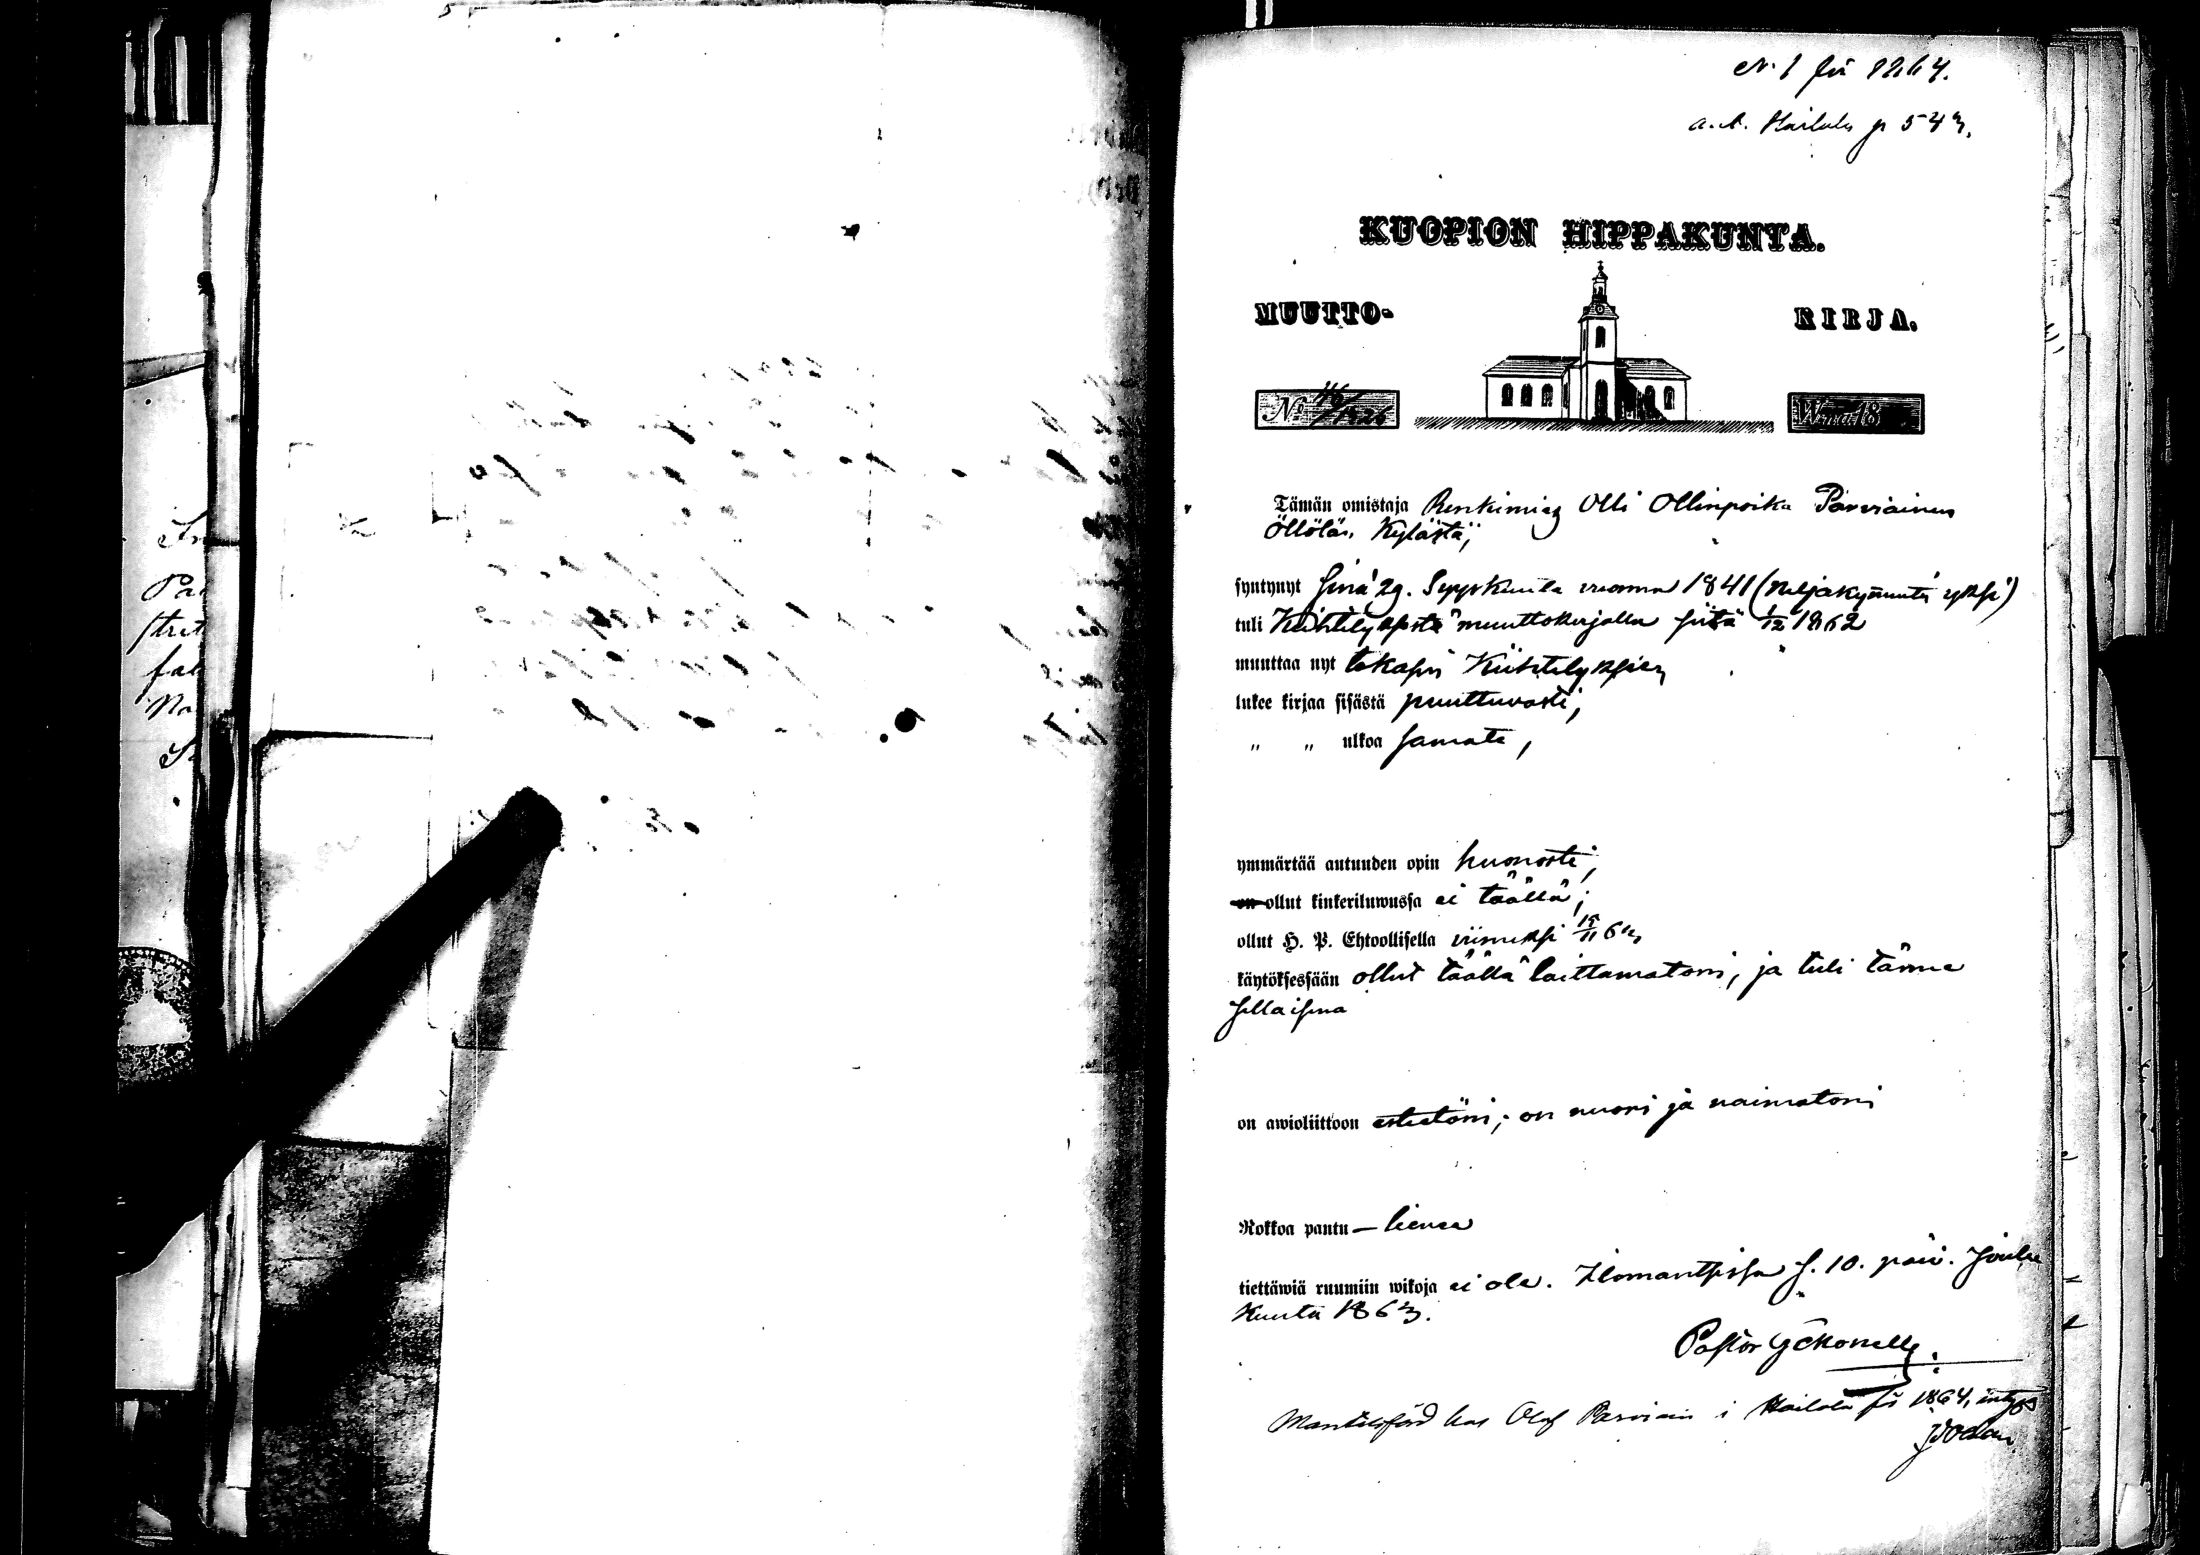 N. 1 för 1864.
a. l. Hailola p 543.
KUOPION HIPPAKUNTA.
MUUTTO- KIRJA.
No 46/1826 Wuona 18
Tämän omistaja Renkimies Olli Ollinpoika Parviainen
Öllölän Kylästä,
syntynyt sinä 29. Syyskuuta vuonna 1841 (neljäkymmentä yksi)
tuli Kiihtelyksestä muuttokirjalla siitä 1/12 1862
muuttaa nyt takasin Kiihtelykseen
lukee kirjaa sisästä puuttuvasti,
" " ulkoa samate,
ymmärtää autuuden opin huonosti,
on ollut kinkeriluwussa ei täällä;
ollut H. P. Ehtoollisella viimeksi 15/11 63
käytöksessään ollut täällä laittamatoin, ja tuli tänne
sellaisena
on awioliittoon esteetöin; on nuori ja naimatoin
Rokkoa pantu — lienee
tiettäwiä ruumiin wikoja ei ole. Ilomantsissa s. 10. päiv. Joulu
Kuuta 1863.
Pastor
Mantalsförd hos Olof Parviain i Hailola för 1864, intygas
Pa
stret
fal
No